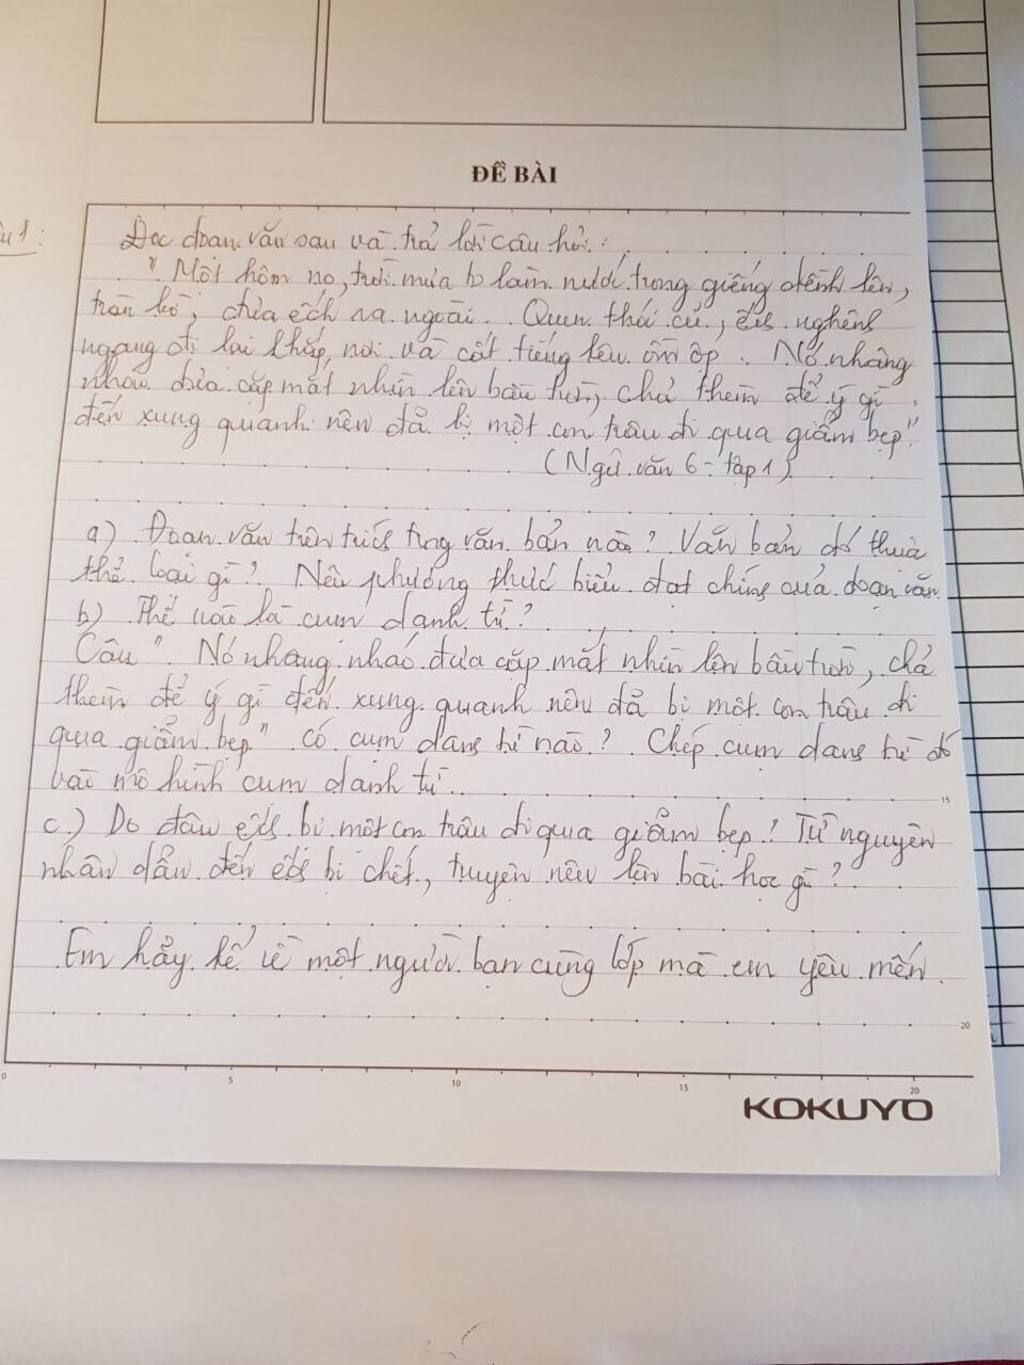 ĐỀ BÀI
Đọc đoạn văn sau và trả lời câu hỏi:
" Một hôm nọ, trời mưa to làm nước trong giếng dềnh lên,
tràn bờ, đưa ếch ra ngoài. Quen thói cũ, ếch nghênh
ngang đi lại khắp nơi và cất tiếng kêu ồm ộp. Nó nhâng
nháo đưa cặp mắt nhìn lên bầu trời, chả thèm để ý gì
đến xung quanh nên đã bị một con trâu đi qua giẫm bẹp".
(Ngữ văn 6 - tập 1)
a) Đoạn văn trên trích trong văn bản nào? Văn bản đó thuộc
thể loại gì? Nêu phương thức biểu đạt chính của đoạn văn
b) Thế nào là cụm danh từ?
Câu " Nó nhâng nháo đưa cặp mắt nhìn lên bầu trời, chả
thèm để ý gì đến xung quanh nên đã bị một con trâu đi
qua giẫm bẹp" có cụm danh từ nào? Chép cụm danh từ đó
vào mô hình cụm danh từ.
15
c) Do đâu ếch bị một con trâu đi qua giẫm bẹp? Từ nguyên
nhân dẫn đến ếch bị chết, truyện nêu lên bài học gì?
Em hãy kể về một người bạn cùng lớp mà em yêu mến.
20
0 5 10 15 20
KOKUYO